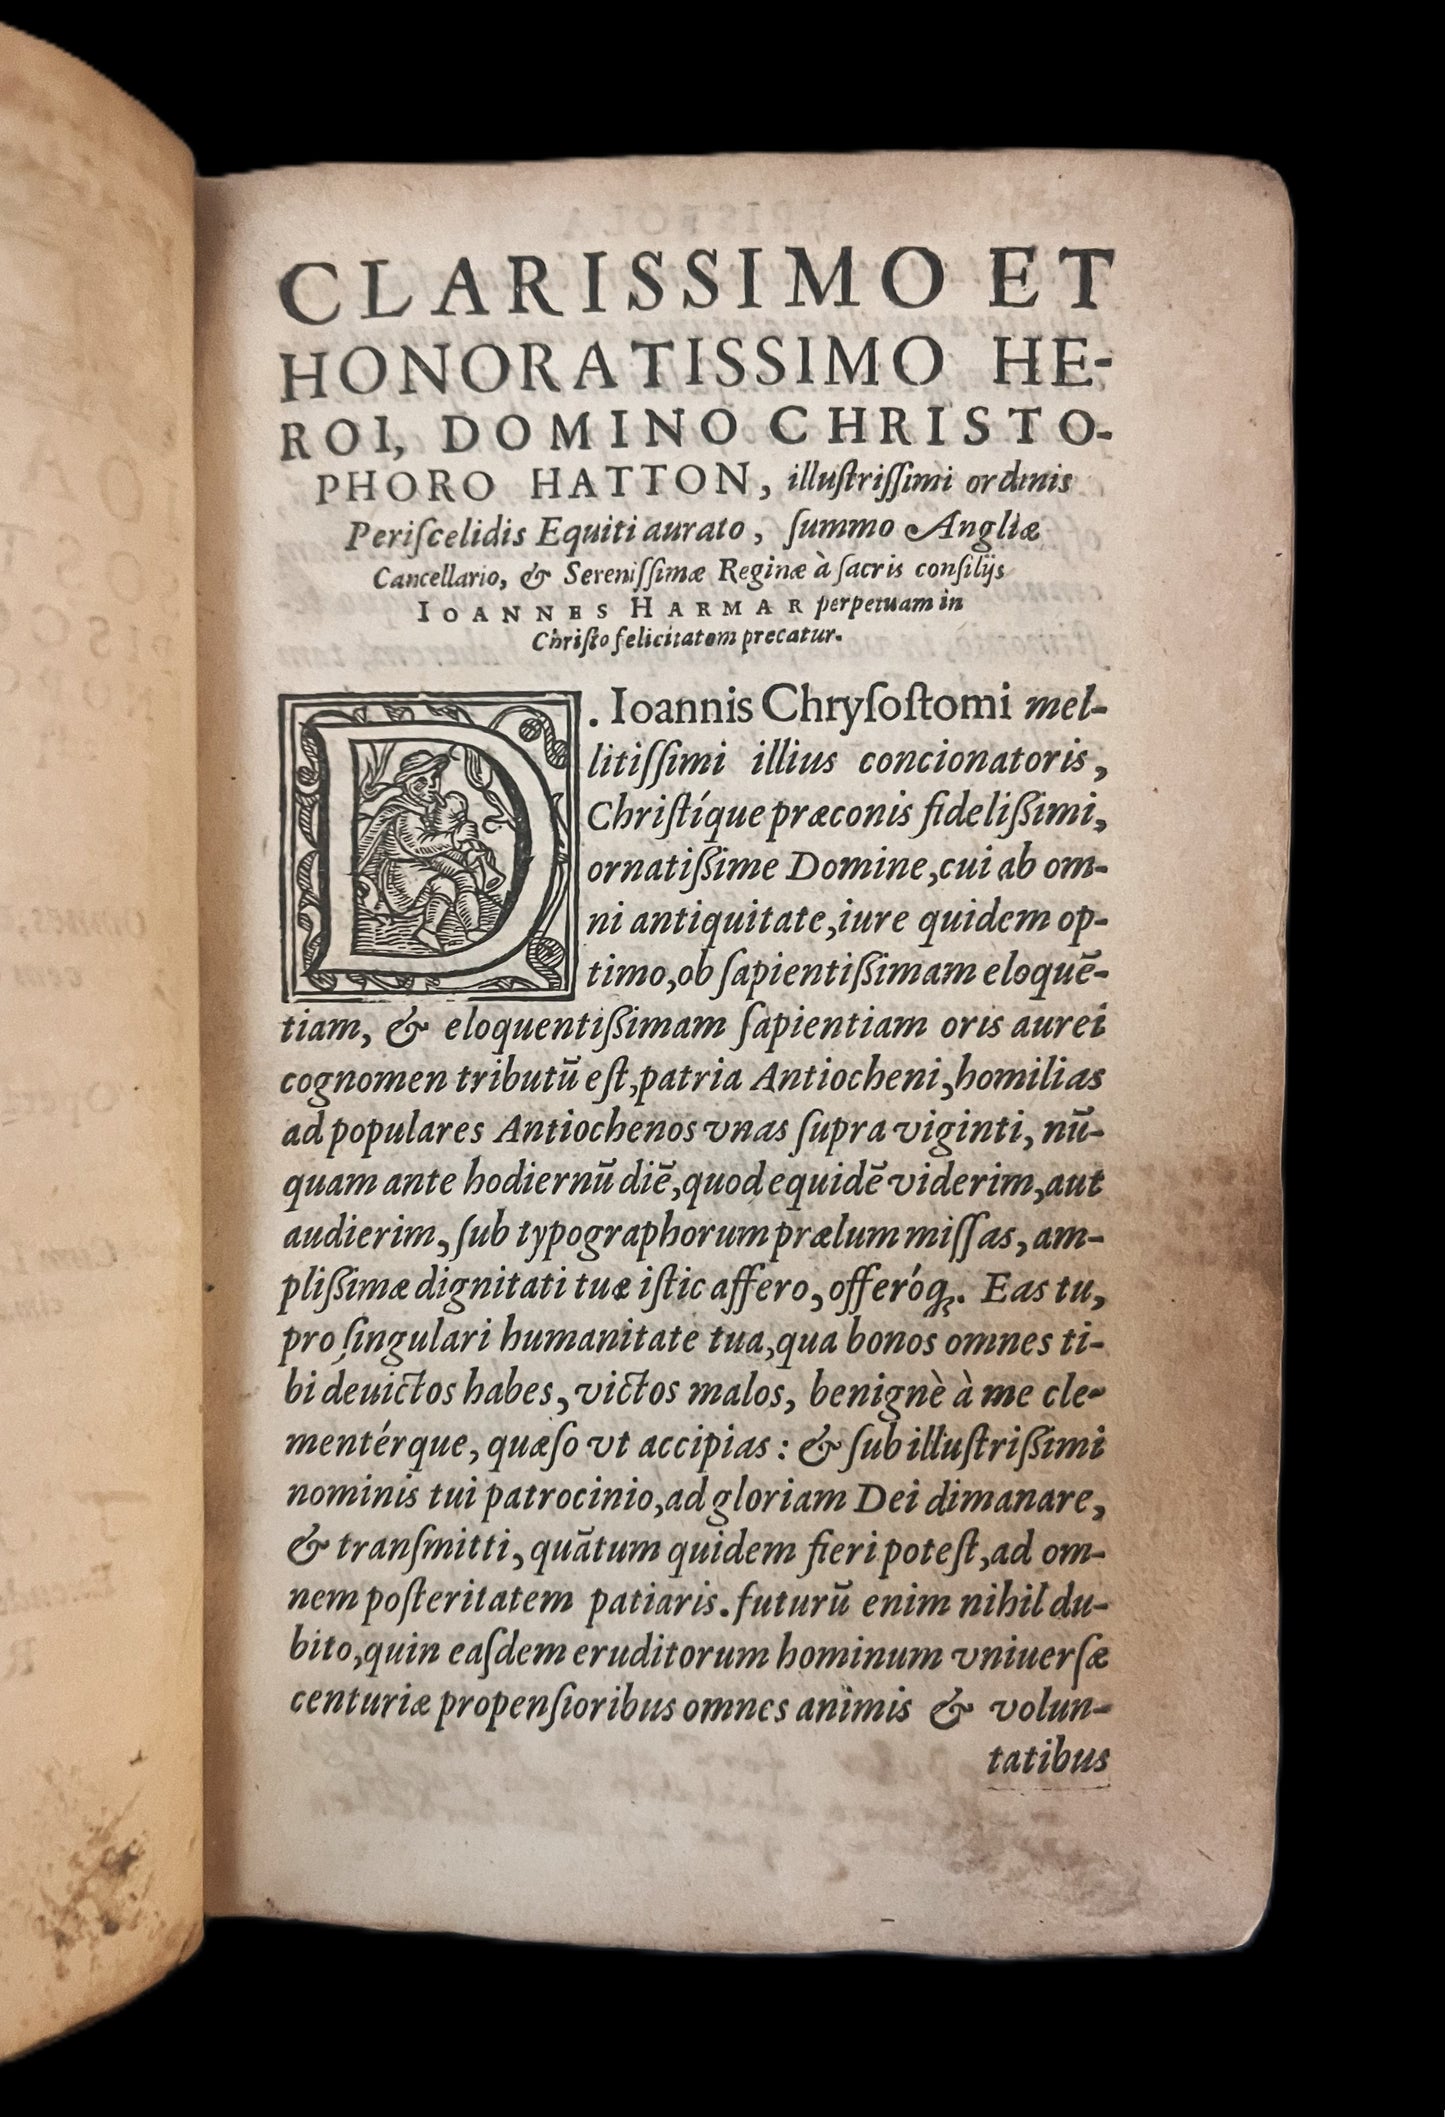 CLARISSIMO ET
HONORATISSIMO HE-
ROI, DOMINO CHRISTO-
PHORO HATTON, illuſtriſſimi ordinis
Periſcelidis Equiti aurato, ſummo Angliæ
Cancellario, & Sereniſſimæ Reginæ à ſacris conſilijs
IOANNES HARMAR perpetuam in
Chriſto felicitatem precatur.
D. Ioannis Chryſoſtomi mel-
litiſſimi illius concionatoris,
Chriſtíque præconis fidelißimi,
ornatißime Domine,cui ab om-
ni antiquitate,iure quidem op-
timo,ob ſapientißimam eloquē-
tiam, & eloquentißimam ſapientiam oris aurei
cognomen tributū eſt,patria Antiocheni,homilias
ad populares Antiochenos vnas ſupra viginti, nū-
quam ante hodiernū diē,quod equidē viderim,aut
audierim, ſub typographorum prælum miſſas, am-
plißimæ dignitati tuæ iſtic affero, offeróq;. Eas tu,
pro ſingulari humanitate tua,qua bonos omnes ti-
bi deuictos habes, victos malos, benignè à me cle-
mentérque, quæſo vt accipias : & ſub illuſtrißimi
nominis tui patrocinio,ad gloriam Dei dimanare,
& tranſmitti, quātum quidem fieri poteſt,ad om-
nem poſteritatem patiaris. futurū enim nihil du-
bito,quin eaſdem eruditorum hominum vniuerſæ
centuriæ propenſioribus omnes animis & volun-
tatibus